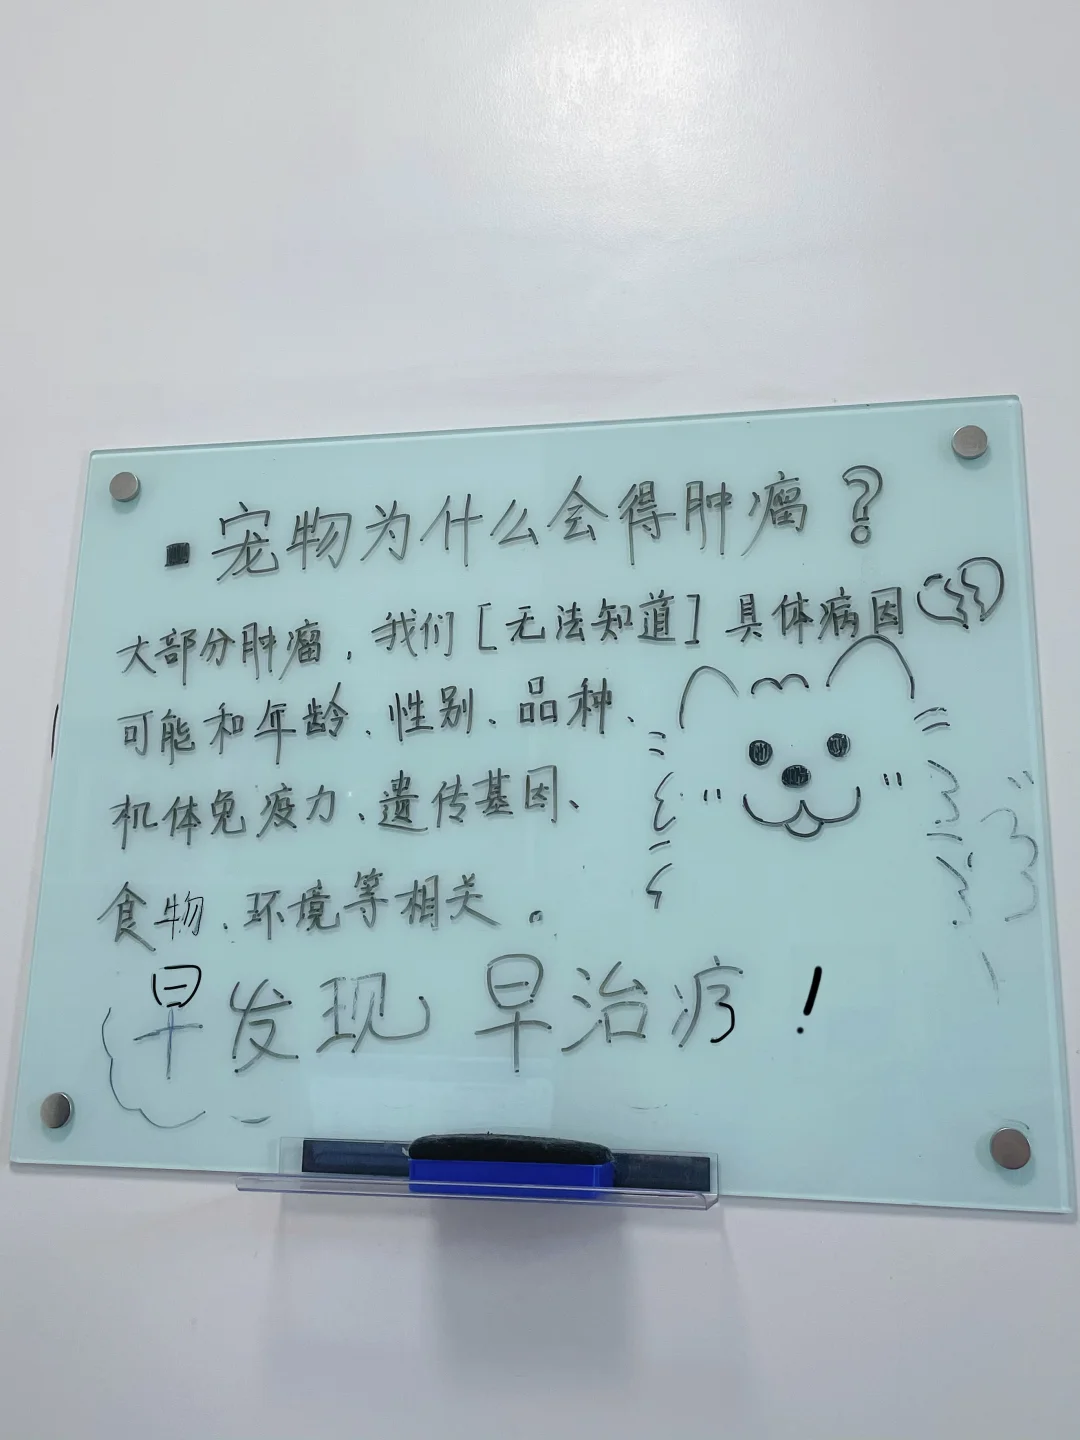 ■宠物为什么会得肿瘤?
大部分肿瘤,我们[无法知道]具体病因
可能和年龄、性别、品种、
机体免疫力、遗传基因、
食物、环境等相关。
早发现 早治疗!